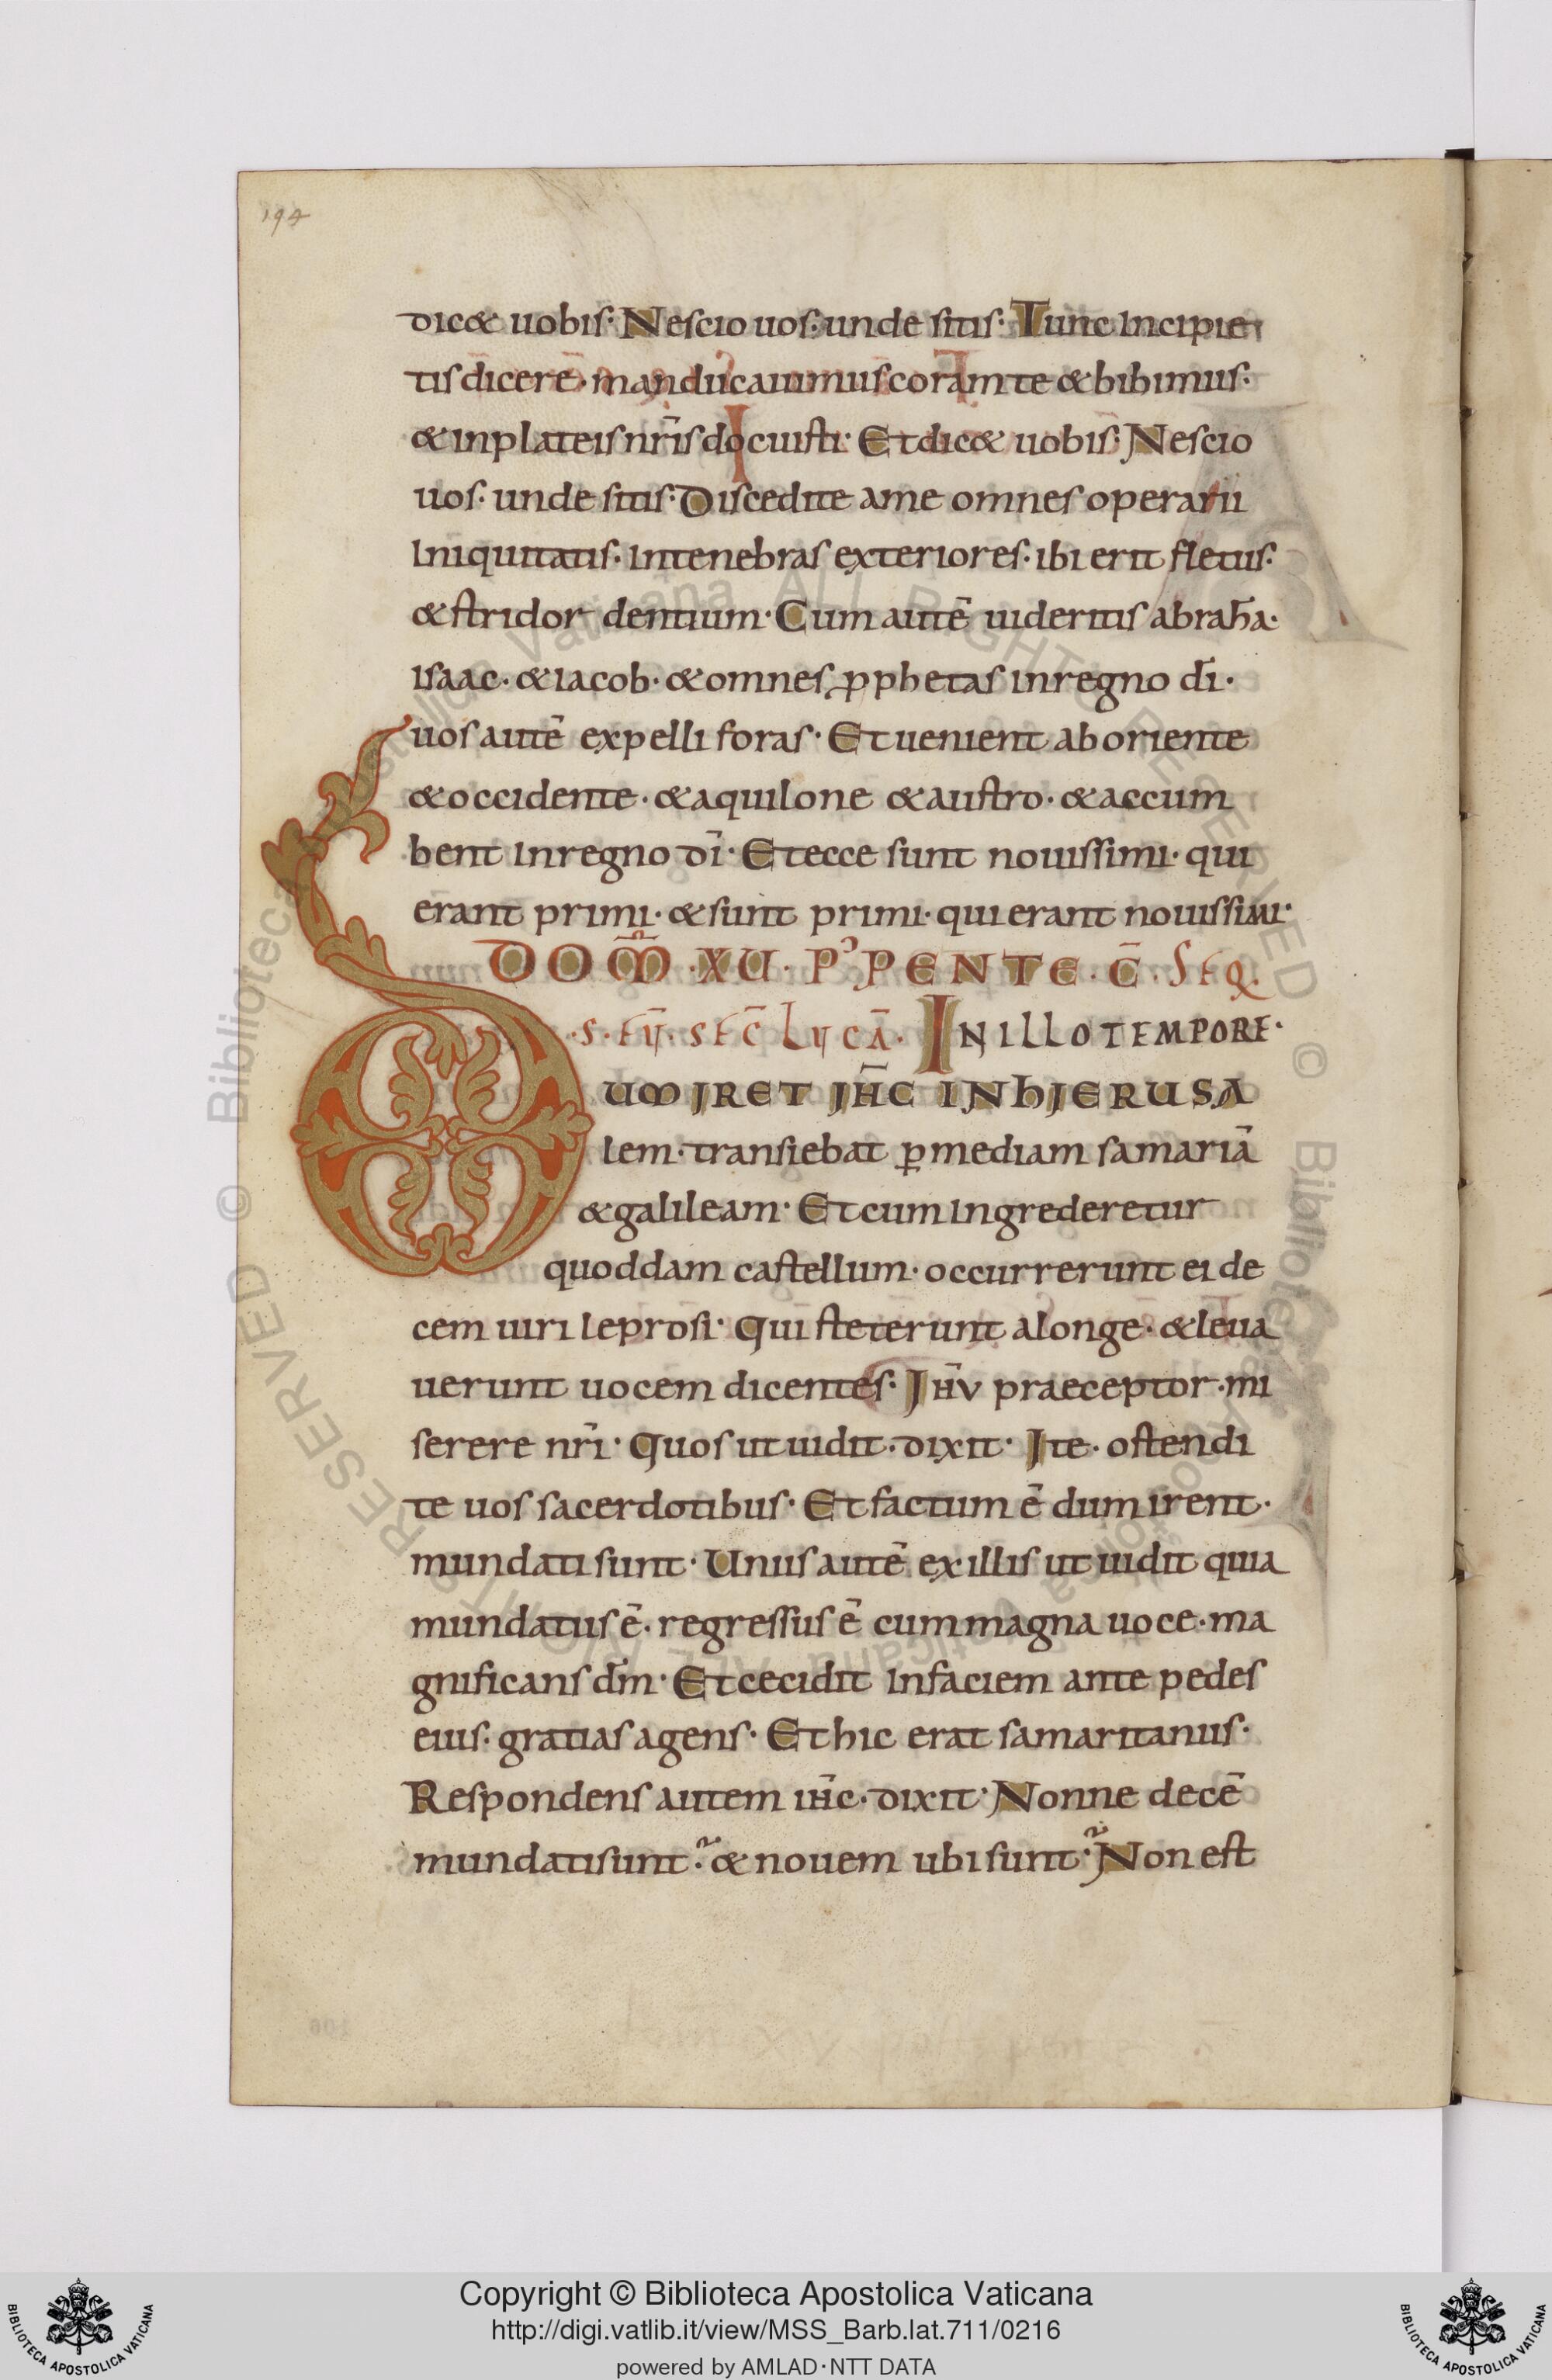 194
dicet uobis· Nescio uos· unde sitis· Tunc incipie
tis dicere· manducauimus coram te & bibimus·
& in plateis nr̄is docuisti· Et dic& uobis· Nescio
uos· unde sitis· Discedite a me omnes operarii
iniquitatis· in tenebras exteriores· ibi erit fletus·
& stridor dentium· Cum autē uideritis abrahā·
isaac· & iacob· & omnes ꝓphetas in regno dī·
uos autē expelli foras· Et uenient ab oriente
& occidente· & aquilone & austro· & accum
bent in regno dī· Et ecce sunt nouissimi· qui
erant primi· & sunt primi· qui erant nouissimi·
DOM̄·XV· P' PENTE· C̄· SEQ·
S· EṼ· SEC̄ LVCĀ· IN ILLO TEMPORE·
DUM IRET IH̄C IN HIERUSA
lem· transiebat ꝑ mediam samariā
& galileam· Et cum ingrederetur
quoddam castellum· occurrerunt ei de
cem uiri leprosi· Qui steterunt a longe· & leua
uerunt uocem dicentes· IH̄V praeceptor· mi
serere nr̄i· Quos ut uidit· dixit· Ite· ostendi
te uos sacerdotibus· Et factum ē dum irent·
mundati sunt· Unus autē ex illis ut uidit quia
mundatus ē· regressus ē cum magna uoce· ma
gnificans dm̄· Et cecidit in faciem ante pedes
eius· gratias agens· Et hic erat samaritanus·
Respondens autem ih̄c· dixit· Nonne decē
mundati sunt? & nouem ubi sunt? Non est
Copyright © Biblioteca Apostolica Vaticana
http://digi.vatlib.it/view/MSS_Barb.lat.711/0216
powered by AMLAD·NTT DATA
BIBLIOTECA APOSTOLICA VATICANA
BIBLIOTECA APOSTOLICA VATICANA